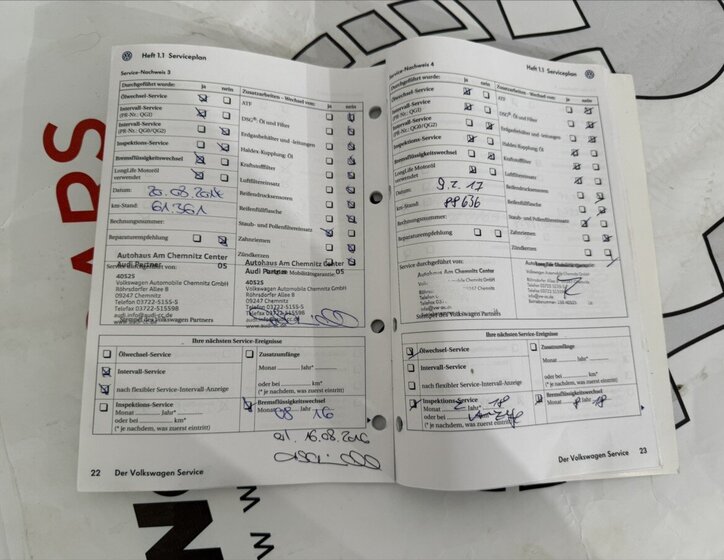 Heft 1.1 Serviceplan
Service-Nachweis 3
Durchgeführt wurde: ja nein
Ölwechsel-Service
Intervall-Service
(PR-Nr.: QGI)
Intervall-Service
(PR-Nr.: QG0/QG2)
Inspektions-Service
Bremsflüssigkeitswechsel
LongLife Motoröl
verwendet
Datum: 20.08.2014
km-Stand: 61.361
Rechnungsnummer:
Reparaturempfehlung
Zusatzarbeiten – Wechsel von: ja nein
ATF
DSG® Öl und Filter
Erdgasbehälter und -leitungen
Haldex-Kupplung Öl
Kraftstofffilter
Luftfiltereinsatz
Reifendrucksensoren
Reifenfüllflasche
Staub- und Pollenfiltereinsatz
Zahnriemen
Zündkerzen
Autohaus Am Chemnitz Center
Audi Partner 05
Service durchgeführt von:
40525
Volkswagen Automobile Chemnitz GmbH
Röhrsdorfer Allee 8
09247 Chemnitz
Telefon 03722-5155-5
Telefax 03722-515598
www.audi-cc.de
info@audi-cc.de
Stempel des Volkswagen Partners
Autohaus Am Chemnitz Center
Audi Partner 05
Mobilitätsgarantie:
40525
Volkswagen Automobile Chemnitz GmbH
Röhrsdorfer Allee 8
09247 Chemnitz
Telefon 03722-5155-5
Telefax 03722-515598
Ihre nächsten Service-Ereignisse
Ölwechsel-Service
Intervall-Service
nach flexibler Service-Intervall-Anzeige
Inspektions-Service
Monat Jahr*
oder bei km*
(* je nachdem, was zuerst eintritt)
Zusatzumfänge
Monat Jahr*
oder bei km*
(* je nachdem, was zuerst eintritt)
Bremsflüssigkeitswechsel
Monat 08 Jahr 16
16.08.2016
22 Der Volkswagen Service
Heft 1.1 Serviceplan
Service-Nachweis 4
Durchgeführt wurde: ja nein
Ölwechsel-Service
Intervall-Service
(PR-Nr.: QGI)
Intervall-Service
(PR-Nr.: QG0/QG2)
Inspektions-Service
Bremsflüssigkeitswechsel
LongLife Motoröl
verwendet
Datum: 9.2.17
km-Stand: 88636
Rechnungsnummer:
Reparaturempfehlung
Zusatzarbeiten – Wechsel von: ja nein
ATF
DSG® Öl und Filter
Erdgasbehälter und -leitungen
Haldex-Kupplung Öl
Kraftstofffilter
Luftfiltereinsatz
Reifendrucksensoren
Reifenfüllflasche
Staub- und Pollenfiltereinsatz
Zahnriemen
Zündkerzen
Service durchgeführt von:
Autohaus Am Chemnitz Center
Chemnitz GmbH
Stempel des Volkswagen Partners
Volkswagen Automobile Chemnitz GmbH
Röhrsdorfer Allee 8
09247 Chemnitz
Ihre nächsten Service-Ereignisse
Ölwechsel-Service
Intervall-Service
nach flexibler Service-Intervall-Anzeige
Inspektions-Service
Monat 2 Jahr* 18
oder bei km*
(* je nachdem, was zuerst eintritt)
Zusatzumfänge
Monat Jahr*
oder bei km*
(* je nachdem, was zuerst eintritt)
Bremsflüssigkeitswechsel
Monat 8 Jahr 18
Der Volkswagen Service 23
ARS
WWW